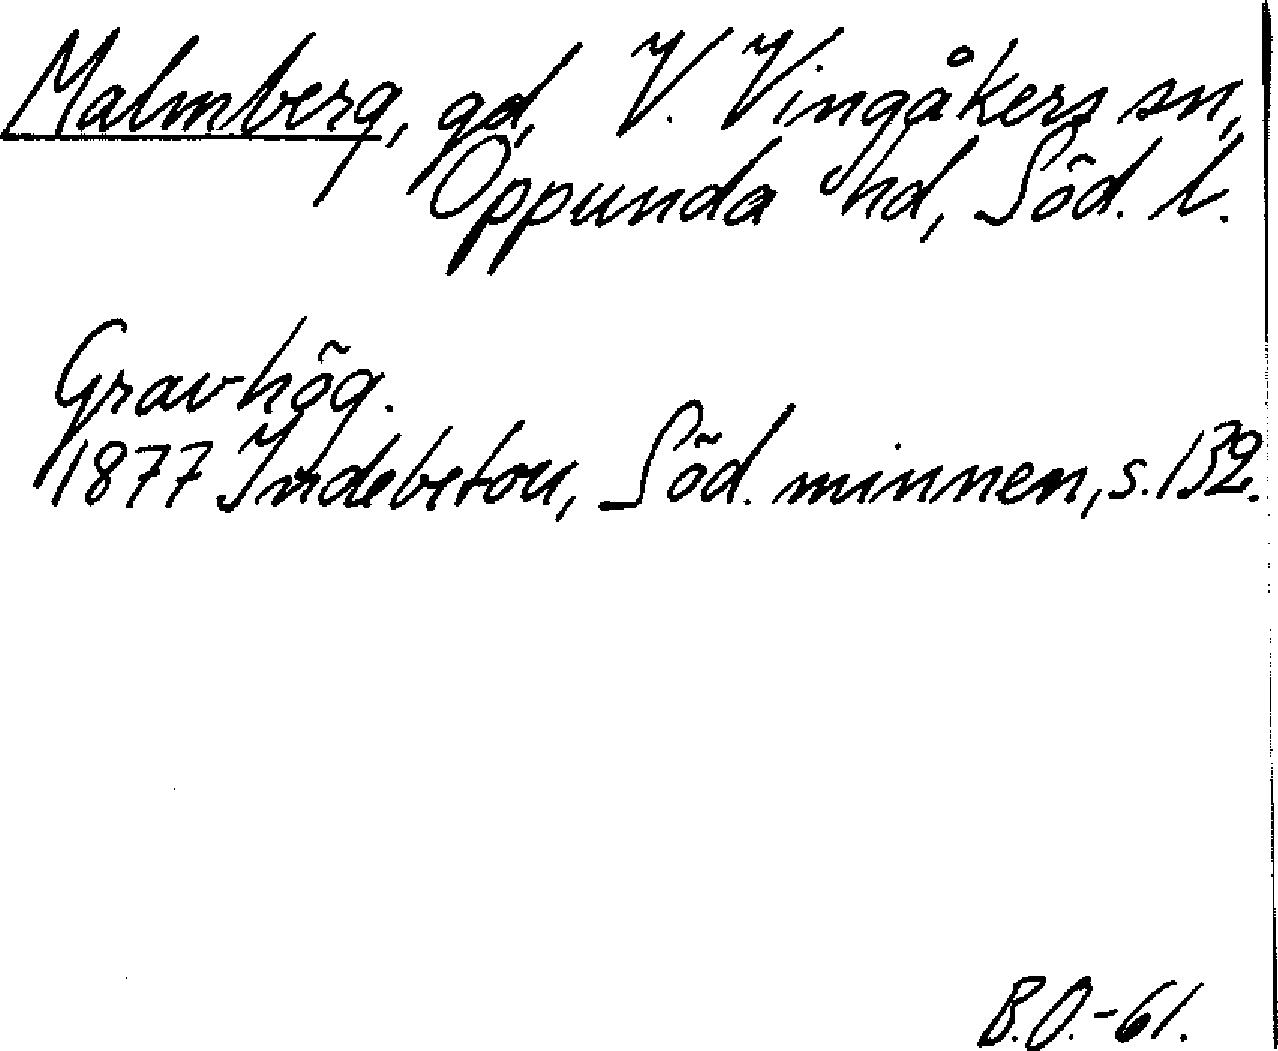 Malmberg, gd, V. Vingåkers sn,
Oppunda hd, Söd. l.
Gravhög.
1877 Indebetou, Söd. minnen, s. 132.
B.O.-61.